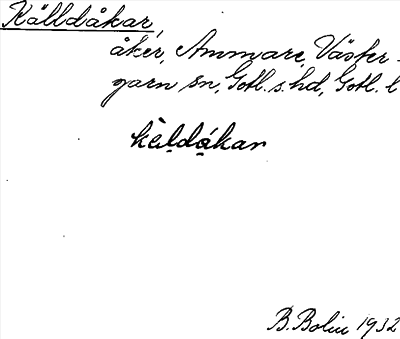 Källdåkar,
åker, Ammare, Väster-
garn sn, Gotl. s. hd, Gotl. l
käldåkar
B. Bolin 1932